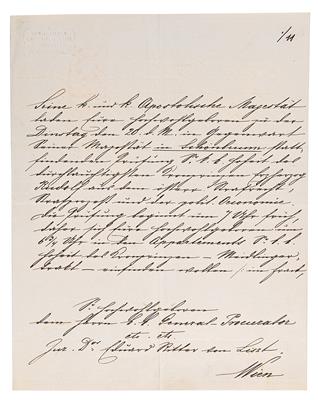 1/11
Seine k. und k. Apostolische Majestät
laden Eure Hochwohlgeboren zu der
Dienstag den 20. d. M. in Gegenwart
Seiner Majestät in Schönbrunn statt-
findenden Prüfung Sr. k. k. Hoheit des
durchlauchtigsten Kronprinzen Erzherzog
Rudolf aus dem
und der polit. Oeconomie.
Die Prüfung beginnt um 7 Uhr früh,
daher sich Eure Hochwohlgeboren um
6¾ Uhr in den Appartements Sr. k. k.
Hoheit des Kronprinzen – Meidlinger-
trakt – einfinden wollen (im Frack).
Sr. Hochwohlgeboren
dem Herrn k. k. General-Procurator
etc. etc.
Jur. Dr. Eduard Ritter von Liszt.
Wien